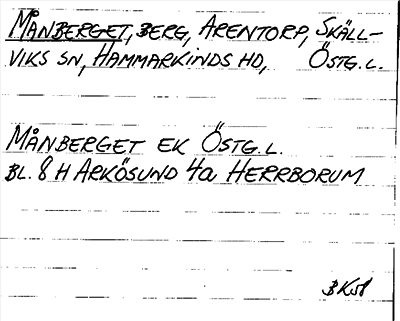 MÅNBERGET, BERG, ARENTORP, SKÄLL-
VIKS SN, HAMMARKINDS HD, ÖSTG.L.
MÅNBERGET EK ÖSTG.L.
BL. 8 H ARKÖSUND 4a HERRBORUM